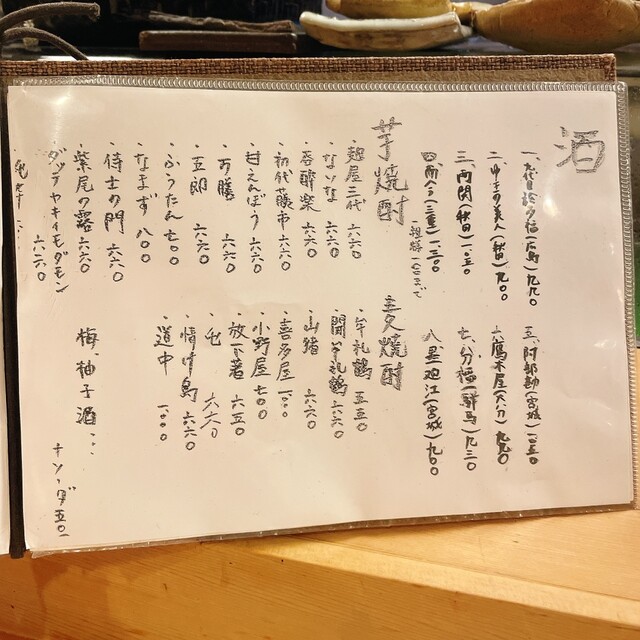 酒
一、九代目於多福(広島)九九〇
二、ゆきの美人(秋田)九〇〇
三、両関(秋田)一、〇五〇
四、而今(三重)一、三〇〇
一組様一合まで
五、阿部勘(宮城)一、〇五〇
六、鷹来屋(大分)九九〇
七、分福(群馬)九三〇
八、墨廼江(宮城)九〇〇
芋焼酎
・麹屋三代 六六〇
・ないな 六六〇
・呑酔楽 六六〇
・初代藤市 六六〇
・甘えんぼう 六六〇
・万膳 六六〇
・五郎 六六〇
・ふうたん 七〇〇
・なまず 八〇〇
・侍士の門 六六〇
・紫尾の露 六六〇
・ダッテヤキイモダモン 六六〇
麦焼酎
・牟礼鶴 五五〇
・閻 牟礼鶴 六六〇
・山猪 六六〇
・喜多屋 一、〇〇〇
・小野屋 七〇〇
・屯 六六〇
・放下着 六五〇
・情け島 六六〇
・道中 一、〇〇〇
梅、柚子酒、、、
+ソーダ五〇